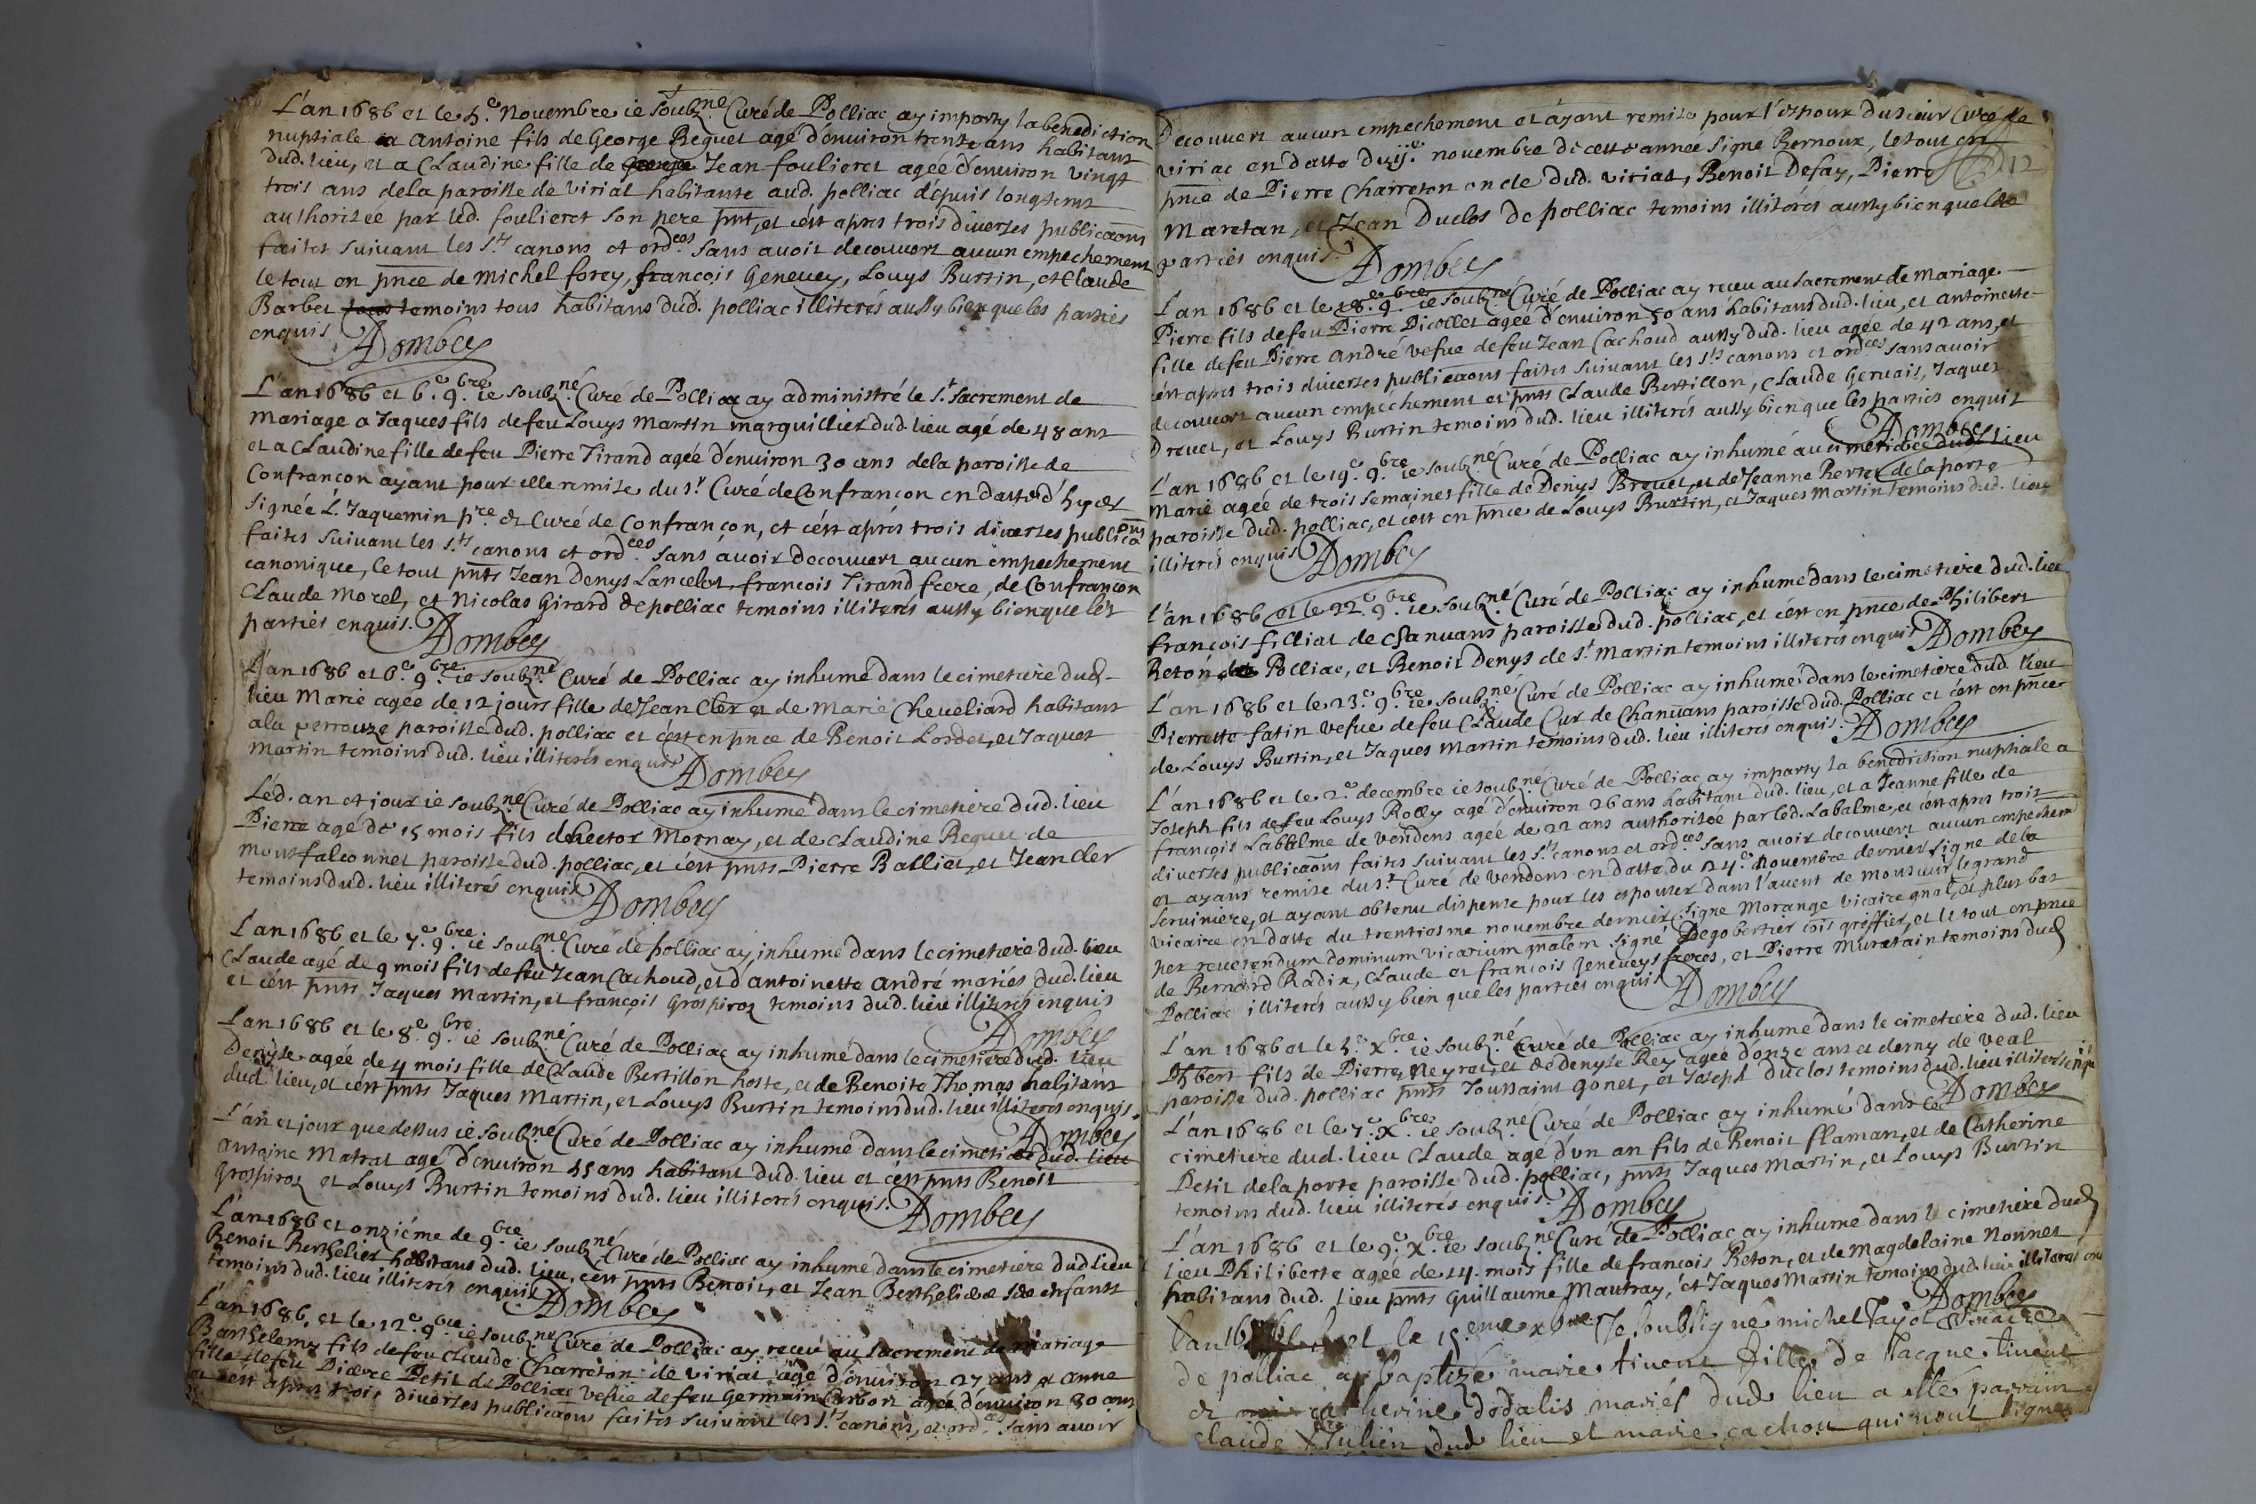 L'an 1686 et le 5.e Novembre ie soubz.né Curé de Polliac ay imparty la benediction
nuptiale a Antoine fils de George Requet agé d'enuiron trente ans habitant
dud. lieu, et a Claudine fille de George Jean foulieret agée d'enuiron vingt
trois ans dela paroisse de viriat habitante aud. polliac depuis longtems
authorisée par led. foulieret son pere pnt, et c'est apres trois diuerses publicaons
faites suivant les s.ts canons et ord.ces sans auoir decouuert aucun empechement
le tout en pnce de michel forey, françois Geneuey, Louys Burtin, et Claude
Barbet tous temoins tous habitans dud. polliac illiterés aussy bien que les parties
enquis. Dombey
L'an 1686 et 6.e 9.bre ie soubz.né Curé de Polliac ay administré le s.t sacrement de
Mariage a Jaques fils de feu Louys Martin marguillier dud. lieu agé de 48 ans
et a Claudine fille de feu Pierre Tirand agée d'enuiron 30 ans dela paroisse de
Confrançon ayant pour elle remise du s.r Curé de Confrançon en datte d'hyer
signée L. Jaquemin p.re et Curé de Confrançon, et c'est aprés trois diuerses publicaons
faites suiuant les s.ts canons et ord.ces sans áuoir decouuert aucun empechement
canonique, le tout pnts Jean Denys Lancelot, francois Tirand frere, de Confrançon
Claude Morel, et Nicolas Girard de polliac temoins illiterés aussy bien que les
parties enquis. Dombey
L'an 1686 et 6.e 9.bre ie soubz.né Curé de Polliac ay inhumé dans le cimetiere dud.
lieu Marie agée de 12 jours fille de Jean Cler et de Marie Cheueliard habitant
ala perrouze paroisse dud. polliac et c'est en pnce de Benoit Lordet, et Jaques
Martin temoins dud. lieu illiterés enquis Dombey
Led. an et jour ie soubz.né Curé de Polliac ay inhumé dans le cimetiere dud. lieu
Pierre agé de 15 mois fils de hector Mornay, et de Claudine Requet de
montfalconnet paroisse dud. polliac, et c'est pnts Pierre Balliet, et Jean Cler
temoins dud. lieu illiterés enquis Dombey
L'an 1686 et le 7.e 9.bre ie soubz.né Curé de polliac ay inhumé dans le cimetiere dud. lieu
Claude agé de 9 mois fils de feu Jean Cachoud, et d'antoinette André mariés dud. lieu
et c'est pnts Jaques Martin, et françois Grospiroz temoins dud. lieu illiterés enquis
Dombey
L'an 1686 et le 8.e 9.bre ie soubz.né Curé de Polliac ay inhumé dans le cimetiere dud. lieu
Denyse agée de 4 mois fille de Claude Bertillon hoste, et de Benoite Thomas habitans
dud. lieu, et c'est pnts Jaques Martin, et Louys Burtin temoins dud. lieu illiterés enquis.
Dombey
L'an et jour que dessus ie soubz.né Curé de Polliac ay inhumé dans le cimetiere dud. lieu
Antoine Matrat agé d'enuiron 55 ans habitant dud. lieu et c'est pnts Benoit
Grospiroz et Louys Burtin temoins dud. lieu illiterés enquis. Dombey
L'an 1686 et onziéme de 9.bre ie soubz.né Curé de Polliac ay inhumé dans le cimetiere dud. lieu
Benoit Berthelier habitant dud. lieu, c'est pnts Benoit, et Jean Berthelier ses enfants
temoins dud. lieu illiterés enquis Dombey
L'an 1686, et le 12.e 9.bre ie soubz.né Curé de Polliac ay receu au sacrement de mariage
Barthelemy fils de feu Claude Charreton de viriat agé d'enuiron 27 ans et anne
fille de feu Pierre Petit de Polliac vefue de feu Germain Carbon agée d'enuiron 30 ans
et c'est apres trois diuerses publicaons faites suiuant les s.ts canons, et ord.ces sans auoir
Decouuert aucun empechement et ayant remise pour l'espoux du sieur Curé de
viriac en datte du ij.e novembre de cette année signé Bernoux, le tout en
12
pnce de Pierre Charreton oncle dud. viriat, Benoit Defay, Pierre
Maretan, et Jean Duclos de polliac temoins illiterés aussy bien que les
parties enquis. Dombey
L'an 1686 et le 18.e 9.bre ie soubz.né Curé de Polliac ay receu au sacrement de mariage
Pierre fils de feu Pierre Picollet agé d'enuiron 50 ans habitans dud. lieu, et antoinette
fille de feu Pierre André vefue de feu Jean Cachoud aussy dud. lieu agée de 42 ans, et
c'est apres trois diuerses publicaons faites suiuant les s.ts canons et ord.ces sans auoir
decouuert aucun empechement et pnts Claude Bertillon, Claude Geruais, Jaques
Dreuet, et Louys Burtin temoins dud. lieu illiterés aussy bien que les parties enquis
Dombey
L'an 1686 et le 19.e 9.bre ie soubz.né Curé de Polliac ay inhumé au cimetiere dud. lieu
Marie agée de trois semaines fille de Denys Breuet, et de Jeanne Perret de la porte
paroisse dud. polliac, et c'est en pnce de Louys Burtin, et Jaques Martin temoins dud. lieu
illiterés enquis Dombey
L'an 1686 et le 22.e 9.bre ie soubz.né Curé de Polliac ay inhumé dans le cimetiere dud. lieu
françois filliat de Chanuans paroisse dud. polliac, et c'est en pnce de Philibert
Reton de Polliac, et Benoit Denys de s.t Martin temoins illiterés enquis Dombey
L'an 1686 et le 23.e 9.bre ie soubz.né Curé de Polliac ay inhumé dans le cimetiere dud. lieu
Pierrette fatin vefue de feu Claude Cur de Chanuans paroisse dud. Polliac et c'est en pnce
de Louys Burtin, et Jaques Martin temoins dud. lieu illiterés enquis. Dombey
L'an 1686 et le 2.e decembre ie soubz.né Curé de Polliac ay imparty la benediction nuptiale a
Joseph fils de feu Louys Rolly agé d'enuiron 26 ans habitant dud. lieu, et a Jeanne fille de
françois Labalme de vendens agée de 22 ans authorisée par led. Labalme, et c'est apres trois
diuerses publicaons faites suiuant les s.ts canons et ord.ces sans auoir decouuert aucun empechem
et ayans remise du s.r Curé de vendens en datte du 24.e Novembre dernier signe de la
seruiniere, et ayant obtenu dispense pour les espouser dans l'auent de monsieur le grand
vicaire en datte du trentiesme novembre dernier signe Morange vicaire gnal, et plus bas
per reuerendum dominum vicarium gnalem signé Degobertier cois greffier, et le tout en pnce
de Bernard Radix, Claude et francois Jeneueys freres, et Pierre Muretain temoins dud.
Polliac illiterés aussy bien que les parties enquis Dombey
L'an 1686 et le 5.e x.bre ie soubz.né Curé de Polliac ay inhumé dans le cimetiere dud. lieu
Phbert fils de Pierre Neyret, et de Denyse Rey agée d'onze ans et demy de veal
paroisse dud. polliac pnts Toussaint Gonet, et Joseph Duclos temoins dud. lieu illiterés enqu
L'an 1686 et le 7.e x.bre ie soubz.né Curé de Polliac ay inhumé dans le Dombey
cimetiere dud. lieu Claude agé d'vn an fils de Benoit flaman, et de Catherine
Petit dela porte paroisse dud. polliac, pnts Jaques Martin, et Louys Burtin
temoins dud. lieu illiterés enquis. Dombey
L'an 1686 et le 9.e x.bre ie soubz.né Curé de Polliac ay inhumé dans le cimetiere dud.
lieu Philiberte agée de 14 mois fille de francois Reton, et de Magdelaine Nonnet
habitans dud. lieu pnts Guillaume Mautray, et Jaques Martin temoins dud. lieu illiterés enq
Dombey
L'an et le 15.eme xbre Je soubsigné michel Tayot vicaire
de polliac ay baptizé marie tiuent fille de Jacque tiuent
et catherine dodalis mariés dud lieu a esté parrain
claude Julien dud lieu et marie cachou qui nont signé